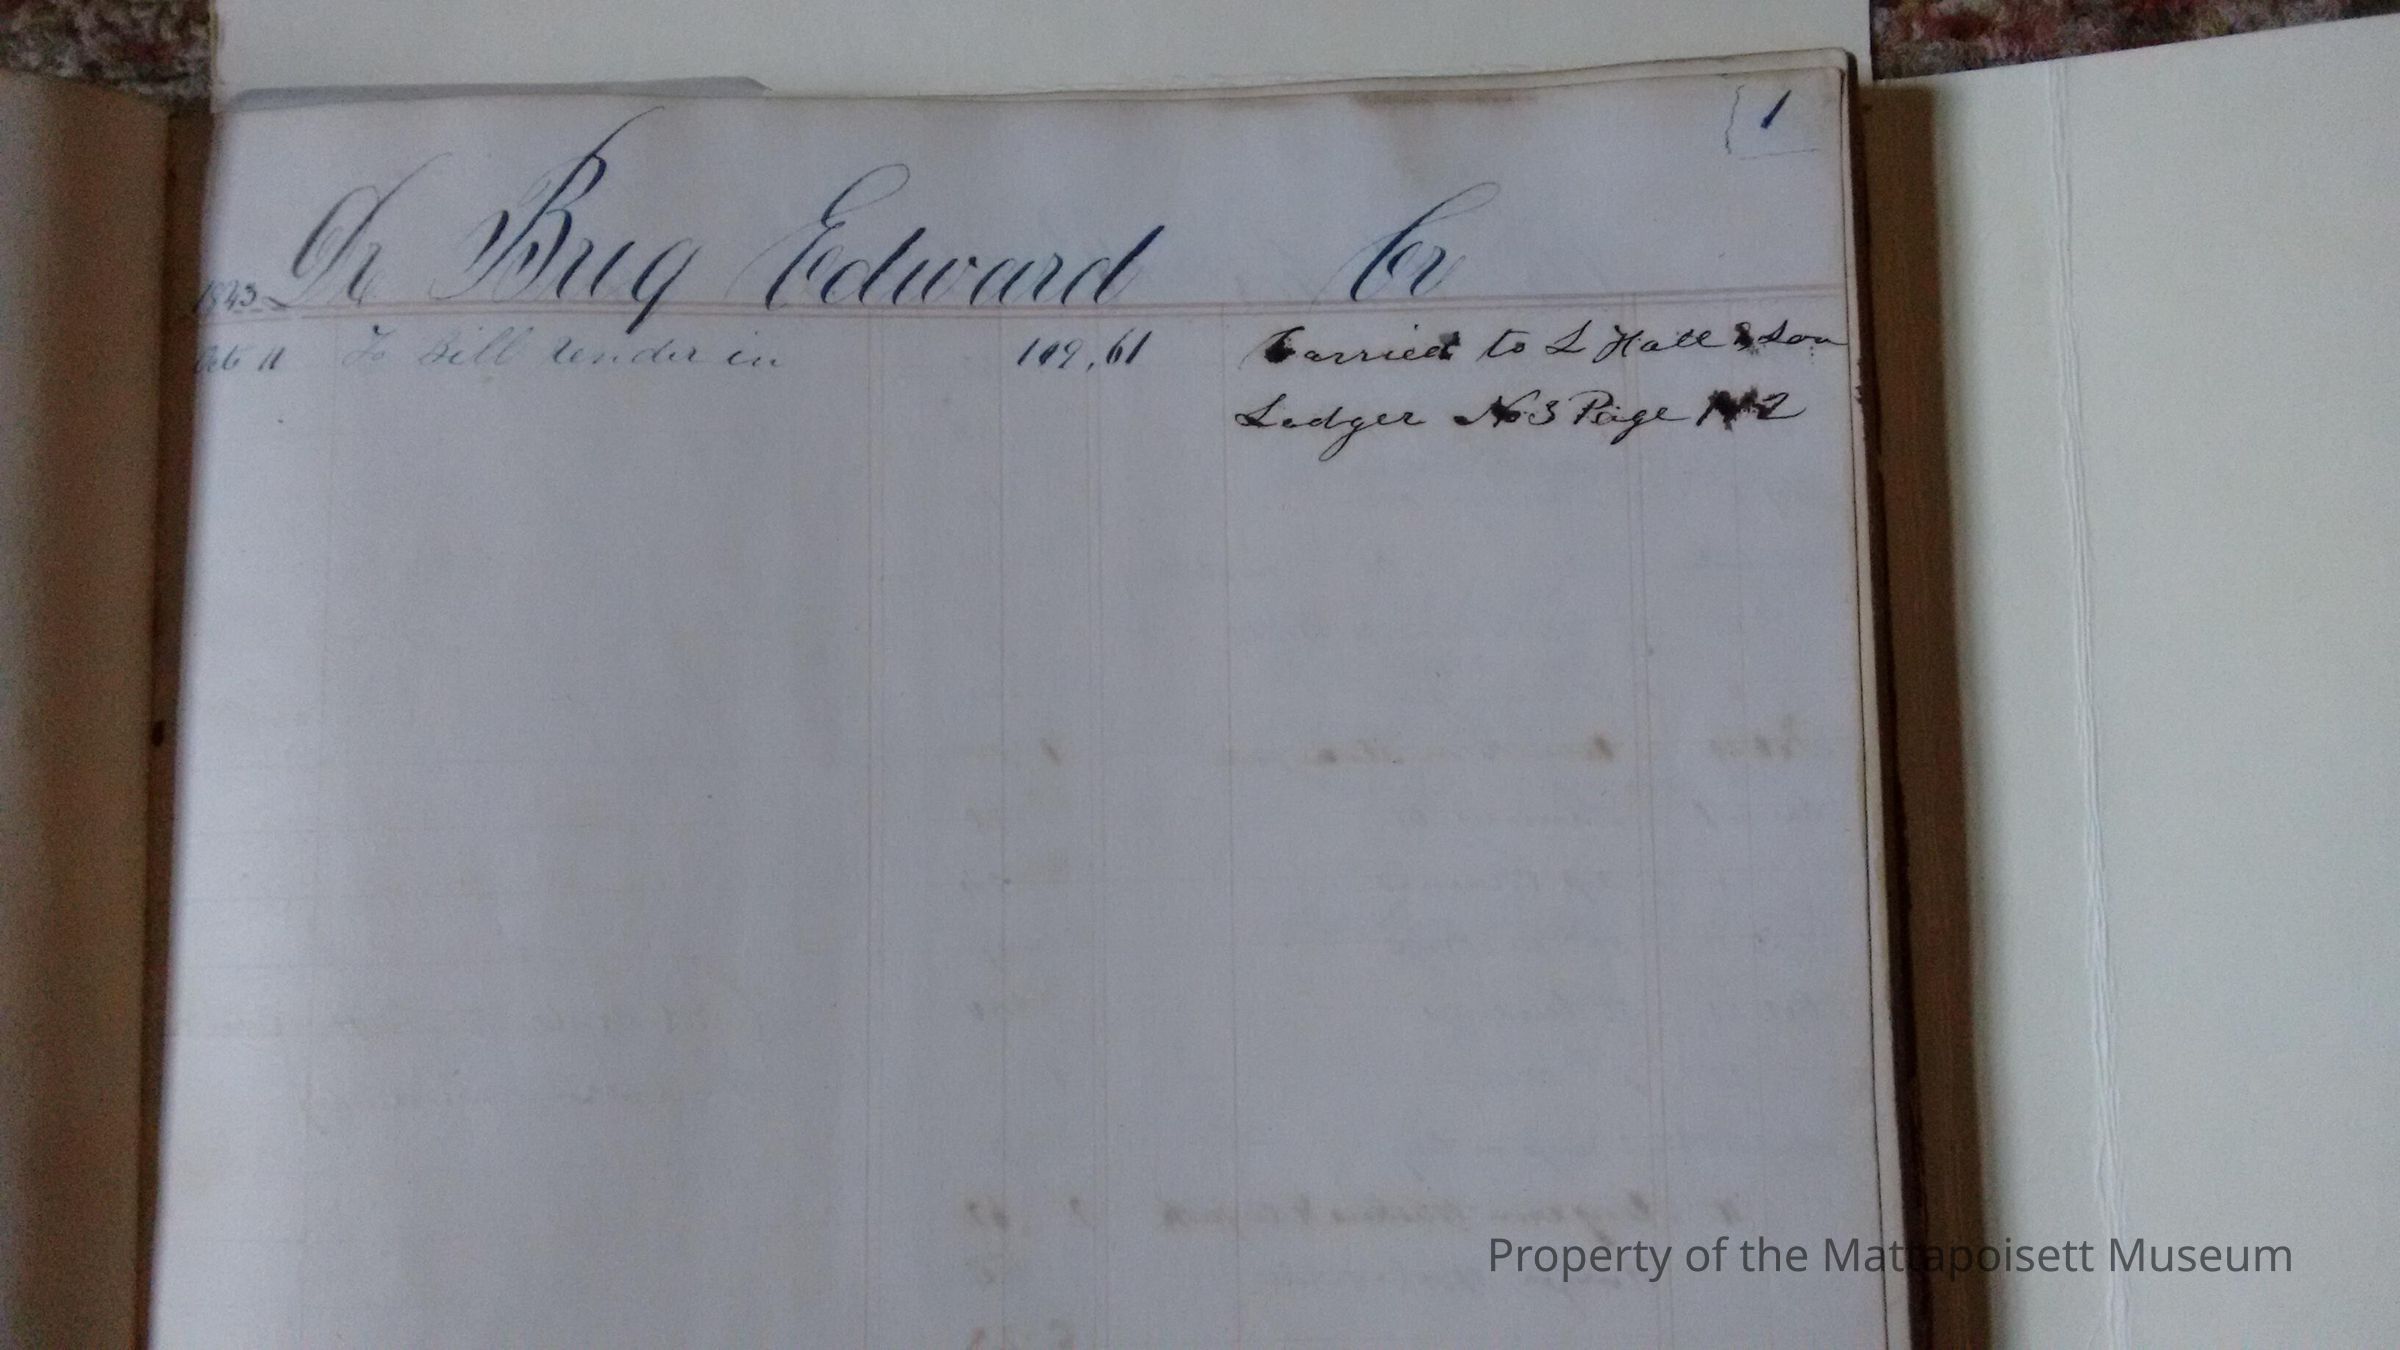 1
Dr Brig Edward Cr
1843
Oct 11 To Bill render in 109,61 Carried to L Hall & Son
Ledger No 3 Page 2
Property of the Mattapoisett Museum